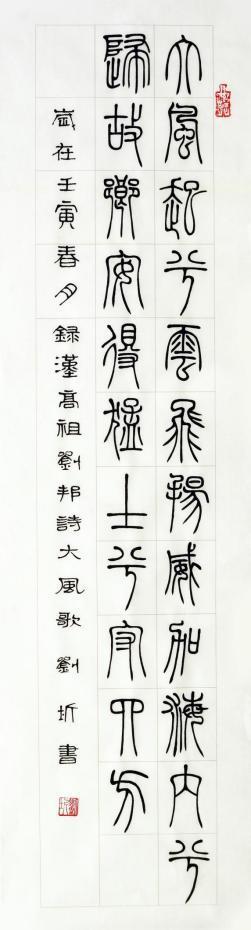 大風起兮雲飛揚威加海内兮
歸故鄉安得猛士兮守四方
歲在壬寅春月錄漢高祖劉邦詩大風歌劉圻書